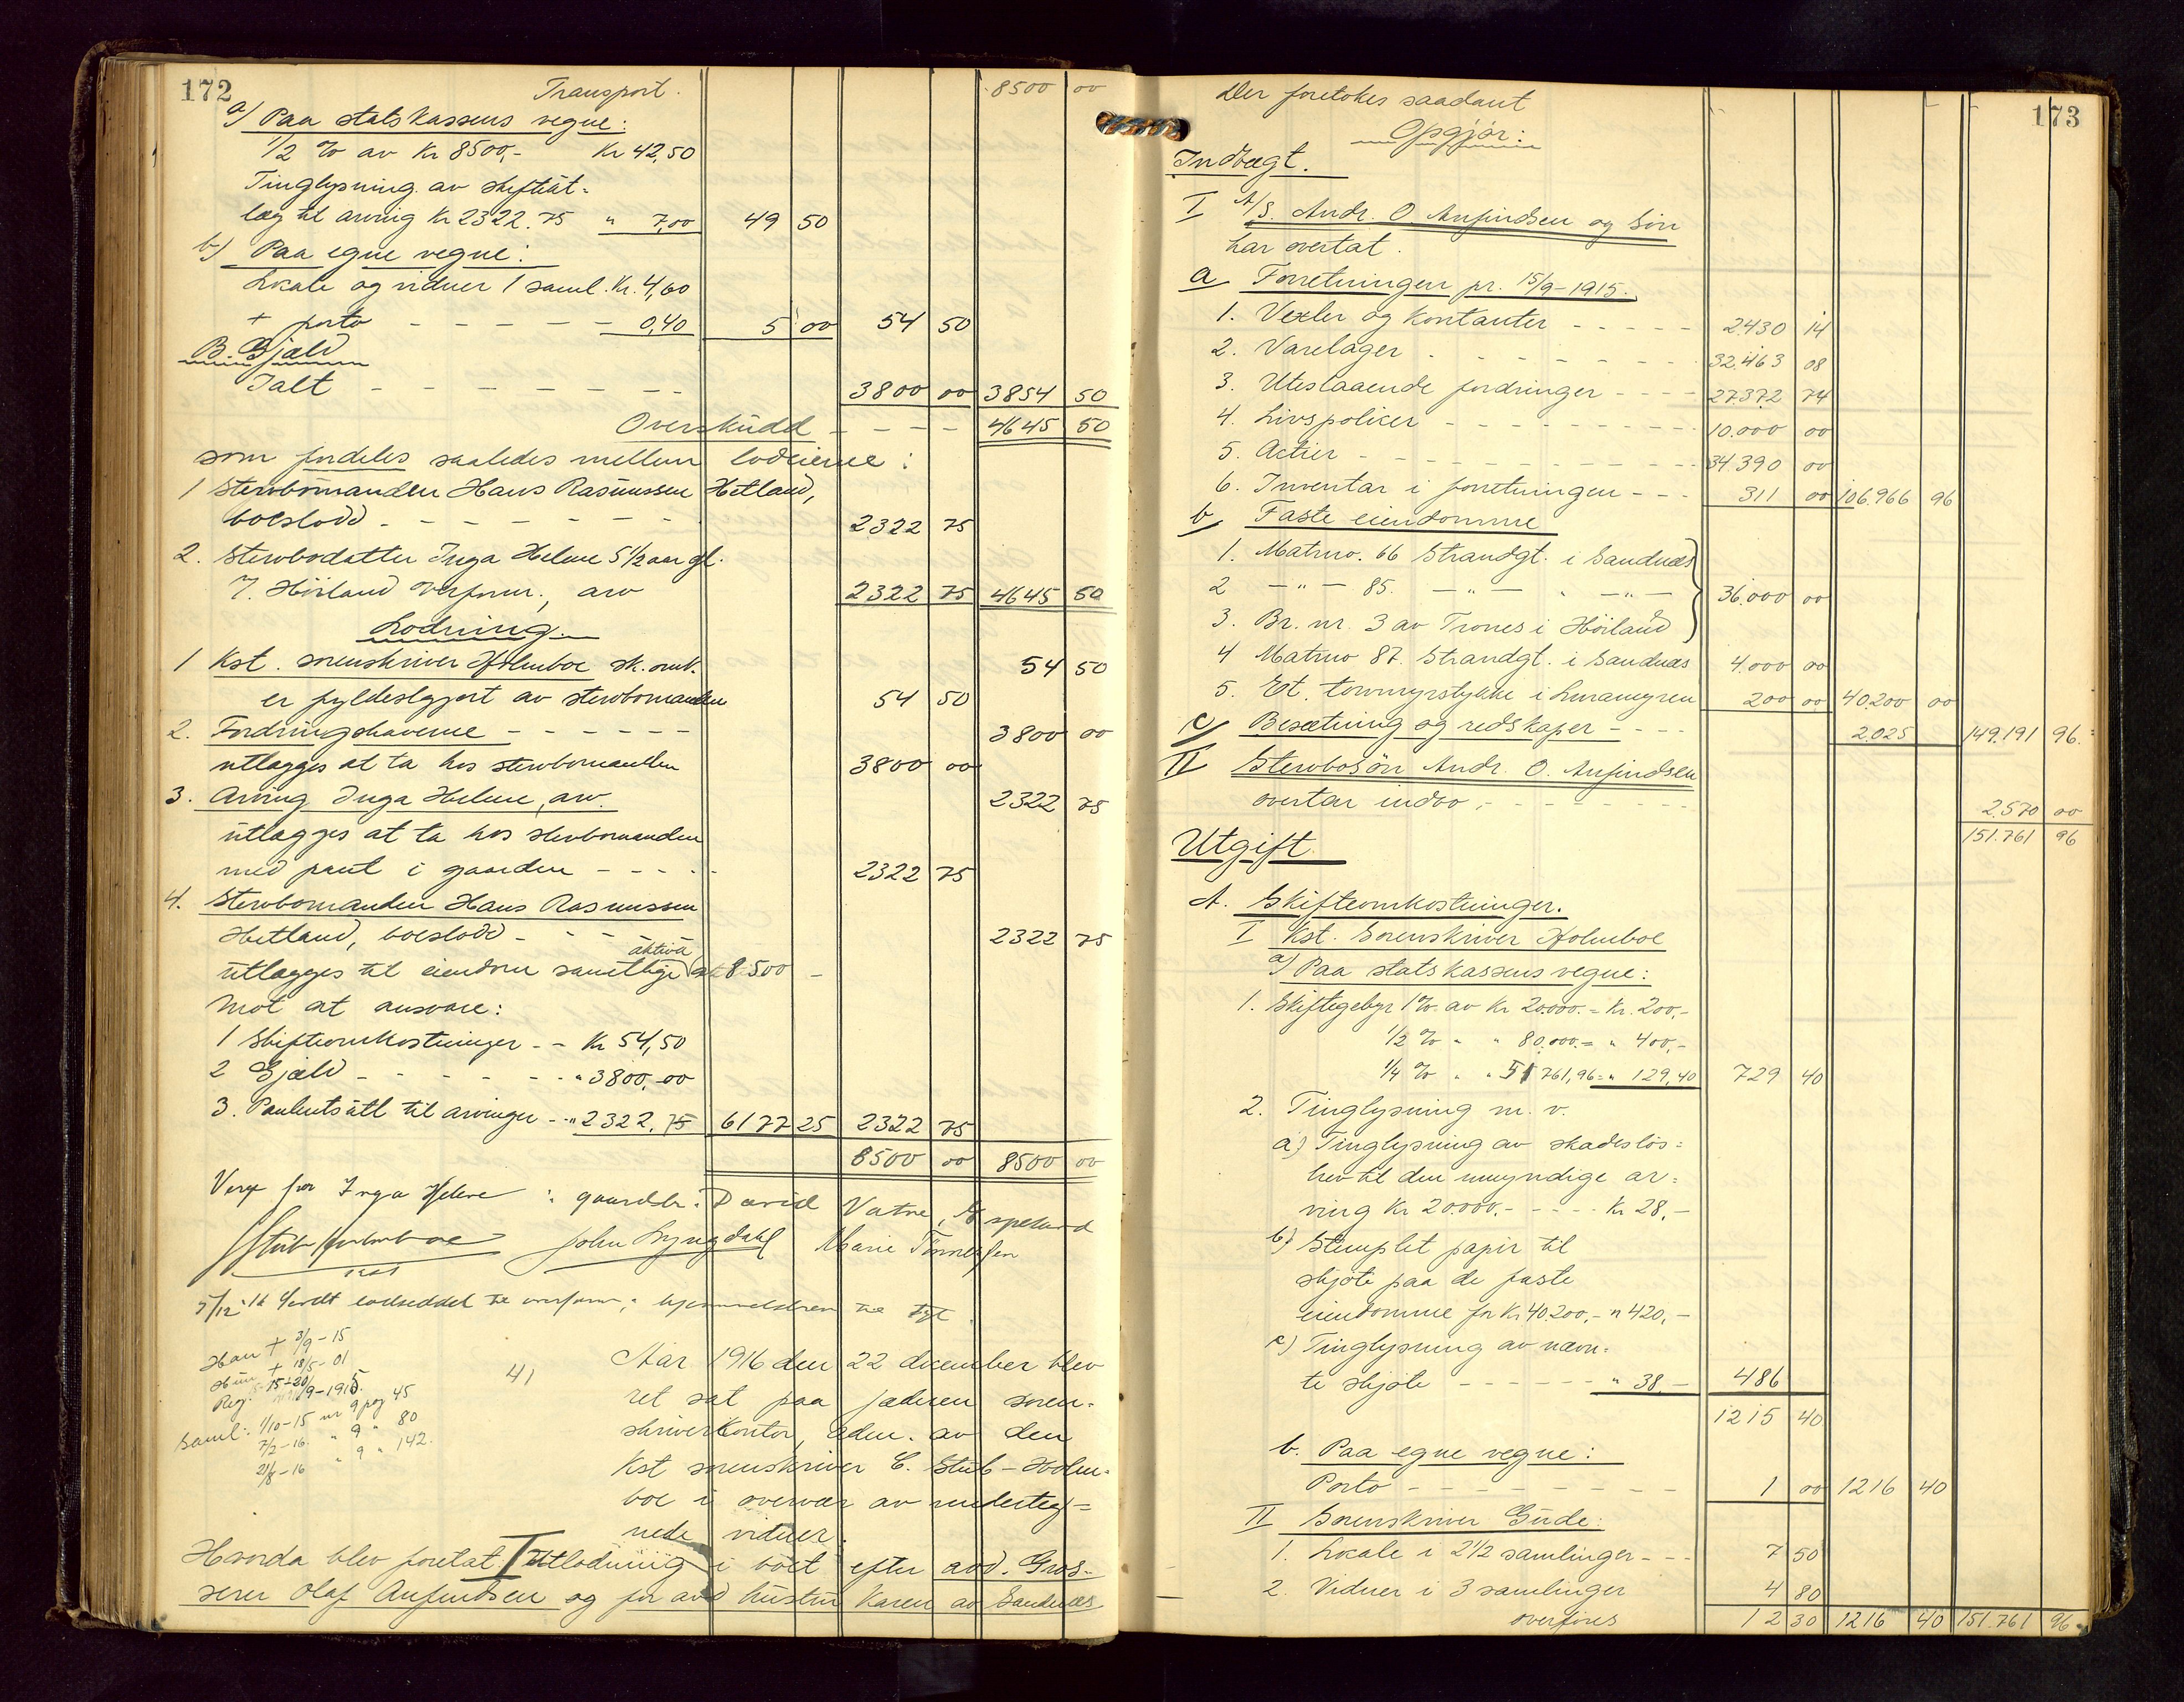 172
Transport. 8500 00
a) Paa statskassens vegne:
1/2 % av Kr 8500,- Kr 42,50
Tinglysning av skifteut-
læg til arving Kr 2322.75 " 7,00 49 50
b) Paa egne vegne:
Lokale og vidner 1 saml. Kr. 4,60
+ porto - - - - - 0,40 5 00 54 50
B. Gjæld
Ialt - - - - - - 3800 00 3854 50
Overskudd - - - - 4645 50
som fordeles saaledes mellem lodeierne:
1 Stervbomanden Hans Rasmussen Hetland,
boeslodd - - - - - - - 2322 75
2. Stervbodatter Inga Helene 5 1/2 aar gl.
7. Höiland overform., arv 2322 75 4645 50
Lodning.
1 Kst. sorenskriver Holmboe sk. omk. 54 50
er fyldestgjort av stervbomanden 54 50
2. Fordringshaverne - - - - - - 3800 00
utlægges at ta hos stervbomanden 3800 00
3. Arving Inga Helene, arv. 2322 75
utlægges at ta hos stervbomanden
med pant i gaarden - - - - - 2322 75
4. Stervbomanden Hans Rasmussen
Hetland, boeslodd - - - - 2322 75
aktiva
utlægges til eiendom samtlige 8500 -
mot at ansvare:
1 Skifteomkostninger - - Kr 54,50
2 Gjæld - - - - - - - " 3800,00
3. Panteutsætl til arvinger - - " 2322.75 6177 25 2322 75
8500 00 8500 00
Verge for Inga Helene : gaardbr. David Vatne, Aspeland
Stub Holmboe John Lyngdahl Marie Tönnessen
kst
5/12-16 sendt lodseddel til overform,; hjemmelsbrev til tgl.
Han + 3/9-15
Hun + 18/5-01
Reg. 15-20/9-1915.
Saml: 1/10-15 nr 9 pag 45
7/2-16. " 9 " 80
21/8-16 " 9 " 142.
41 Aar 1916 den 22 december blev
ret sat paa Jæderen soren-
skriverkontor, adm. av den
Kst sorenskriver C. Stub-Holm-
boe i overvær av underteg-
nede vidner.
Hvorda blev foretat Utlodning i boet efter avd. Gros-
serer Olaf Anfindsen og før avd hustru Karen av Sandnes
173
Der foretokes saadant
Opgjör:
Indtægt.
I A/S. Andr. O Anfindsen og Sön
har overtat.
a Forretningen pr. 15/9-1915.
1. Vexler og Kontanter - - - - - 2430 14
2. Varelager - - - - - - - - 32.463 08
3. Utestaaende fordringer - - - - 27372 74
4. Livspolicer - - - - - - - - - 10.000 00
5. Actier - - - - - - - - - - 34.390 00
6. Inventar i forretningen - - - 311 00 106.966 96
b Faste eiendomme
1. Matrno. 66 Strandgt. i Sandnæs
2 - " - 85. - " - " - " - 36.000 00
3. Br. nr. 3 av Trones i Höiland
4 Matrno 87. Strandgt. i Sandnæs 4.000 00
5. Et. torvmyrstykke i Luramyren 200 00 40.200 00
c) Besætning og redskaper - - - - 2.025 149.191 96.
II Stervbosön Andr. O. Anfindsen
overtar indbo,- - - - - - - - 2.570 00
151.761 96
Utgift.
A. Skifteomkostninger.
I Kst. Sorenskriver Holmboe
a) Paa statskassens vegne:
1. Skiftegebyr 1 % av Kr 20.000.- = Kr. 200,-
1/2 % " " 80.000.- = " 400,-
1/4 % " " 51761,96 = " 129,40 729 40
2. Tinglysning m. v.
a) Tinglysning av skadeslös-
brev til den umyndige ar-
ving Kr 20.000.- - - - - Kr 28,-
b) Stemplet papir til
skjöte paa de faste
eiendomme for Kr. 40.200,- " 420,-
c) Tinglysning av nævn-
te skjöte - - - - - - " 38,- 486
1215 40
b. Paa egne vegne:
Porto - - - - - - - - 1 00 1216 40
II Sorenskriver Gude:
1. Lokale i 2 1/2 samlinger - - - 7 50
2. Vidner i 3 samlinger 4 80
overföres 12 30 1216 40 151.761 96